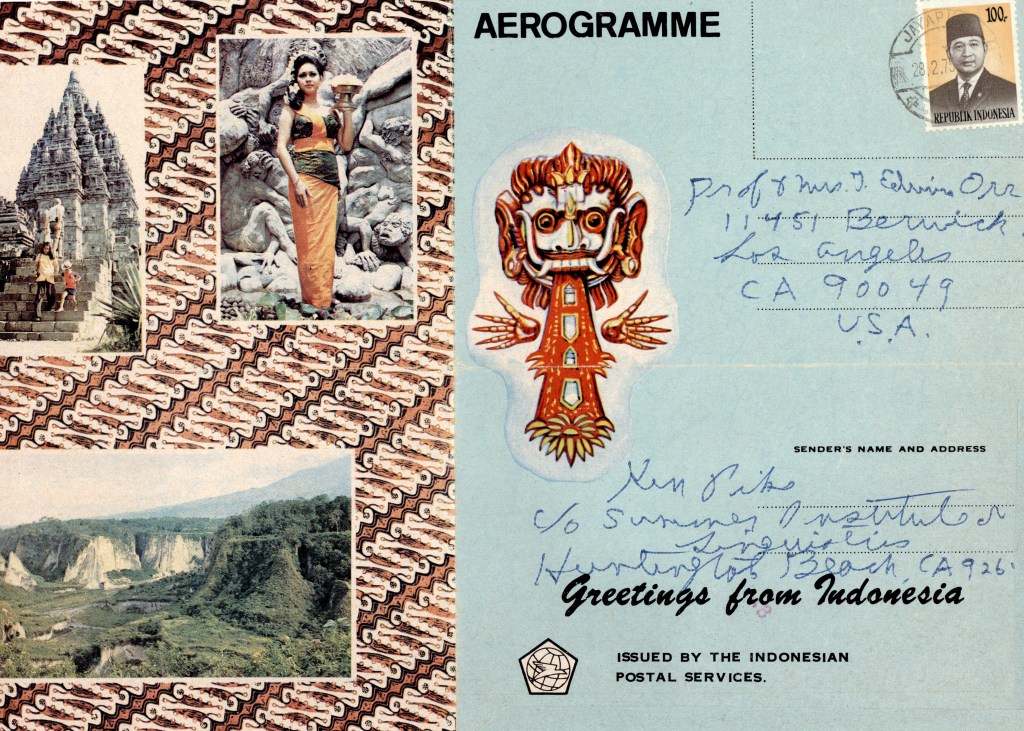 AEROGRAMME
100,-
REPUBLIK INDONESIA
28.2.7
Prof & Mrs. J. Edwin Orr
11451 Berwick
Los Angeles
CA 90049
U.S.A.
SENDER'S NAME AND ADDRESS
Ken Pike
c/o Summer Institute of
Linguistics
Huntington Beach, CA 926
Greetings from Indonesia
ISSUED BY THE INDONESIAN
POSTAL SERVICES.